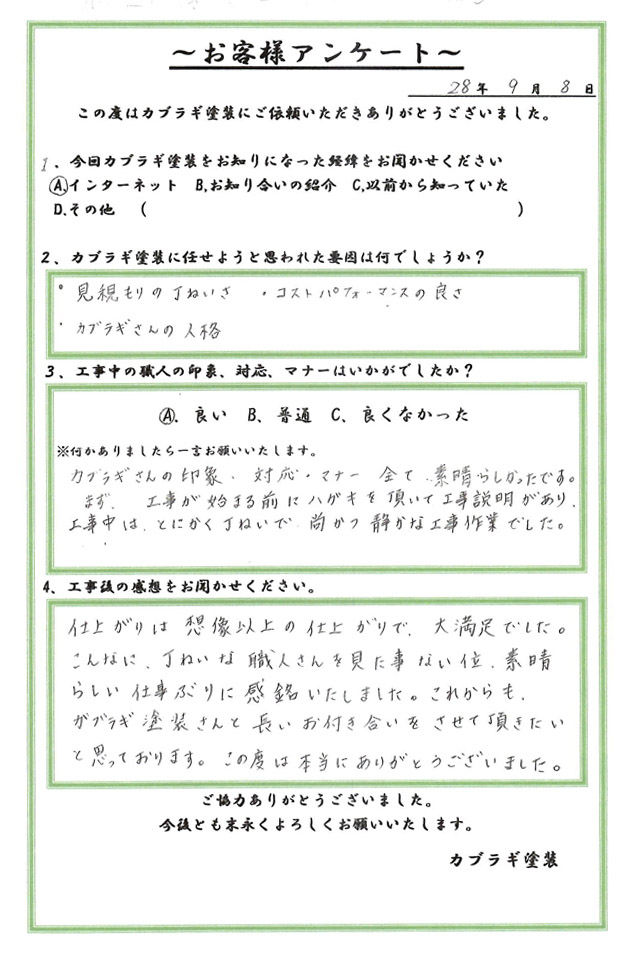 ～お客様アンケート～
28年 9月 8日
この度はカブラギ塗装にご依頼いただきありがとうございました。
1、今回カブラギ塗装をお知りになった経緯をお聞かせください
A.インターネット B.お知り合いの紹介 C.以前から知っていた
D.その他 ( )
2、カブラギ塗装に任せようと思われた要因は何でしょうか？
・見積もりの丁ねいさ ・コストパフォーマンスの良さ
・カブラギさんの人格
3、工事中の職人の印象、対応、マナーはいかがでしたか？
A. 良い B、普通 C、良くなかった
※何かありましたら一言お願いいたします。
カブラギさんの印象・対応・マナー 全て、素晴らしかったです。
まず、工事が始まる前にハガキを頂いて工事説明があり、
工事中は、とにかく丁ねいで 尚かつ 静かな工事作業でした。
4、工事後の感想をお聞かせください。
仕上がりは 想像以上の仕上がりで、大満足でした。
こんなに、丁ねいな 職人さんを見た事ない位、素晴
らしい仕事ぶりに感銘いたしました。これからも、
カブラギ塗装さんと長いお付き合いをさせて頂きたい
と思っております。この度は本当にありがとうございました。
ご協力ありがとうございました。
今後とも末永くよろしくお願いいたします。
カブラギ塗装